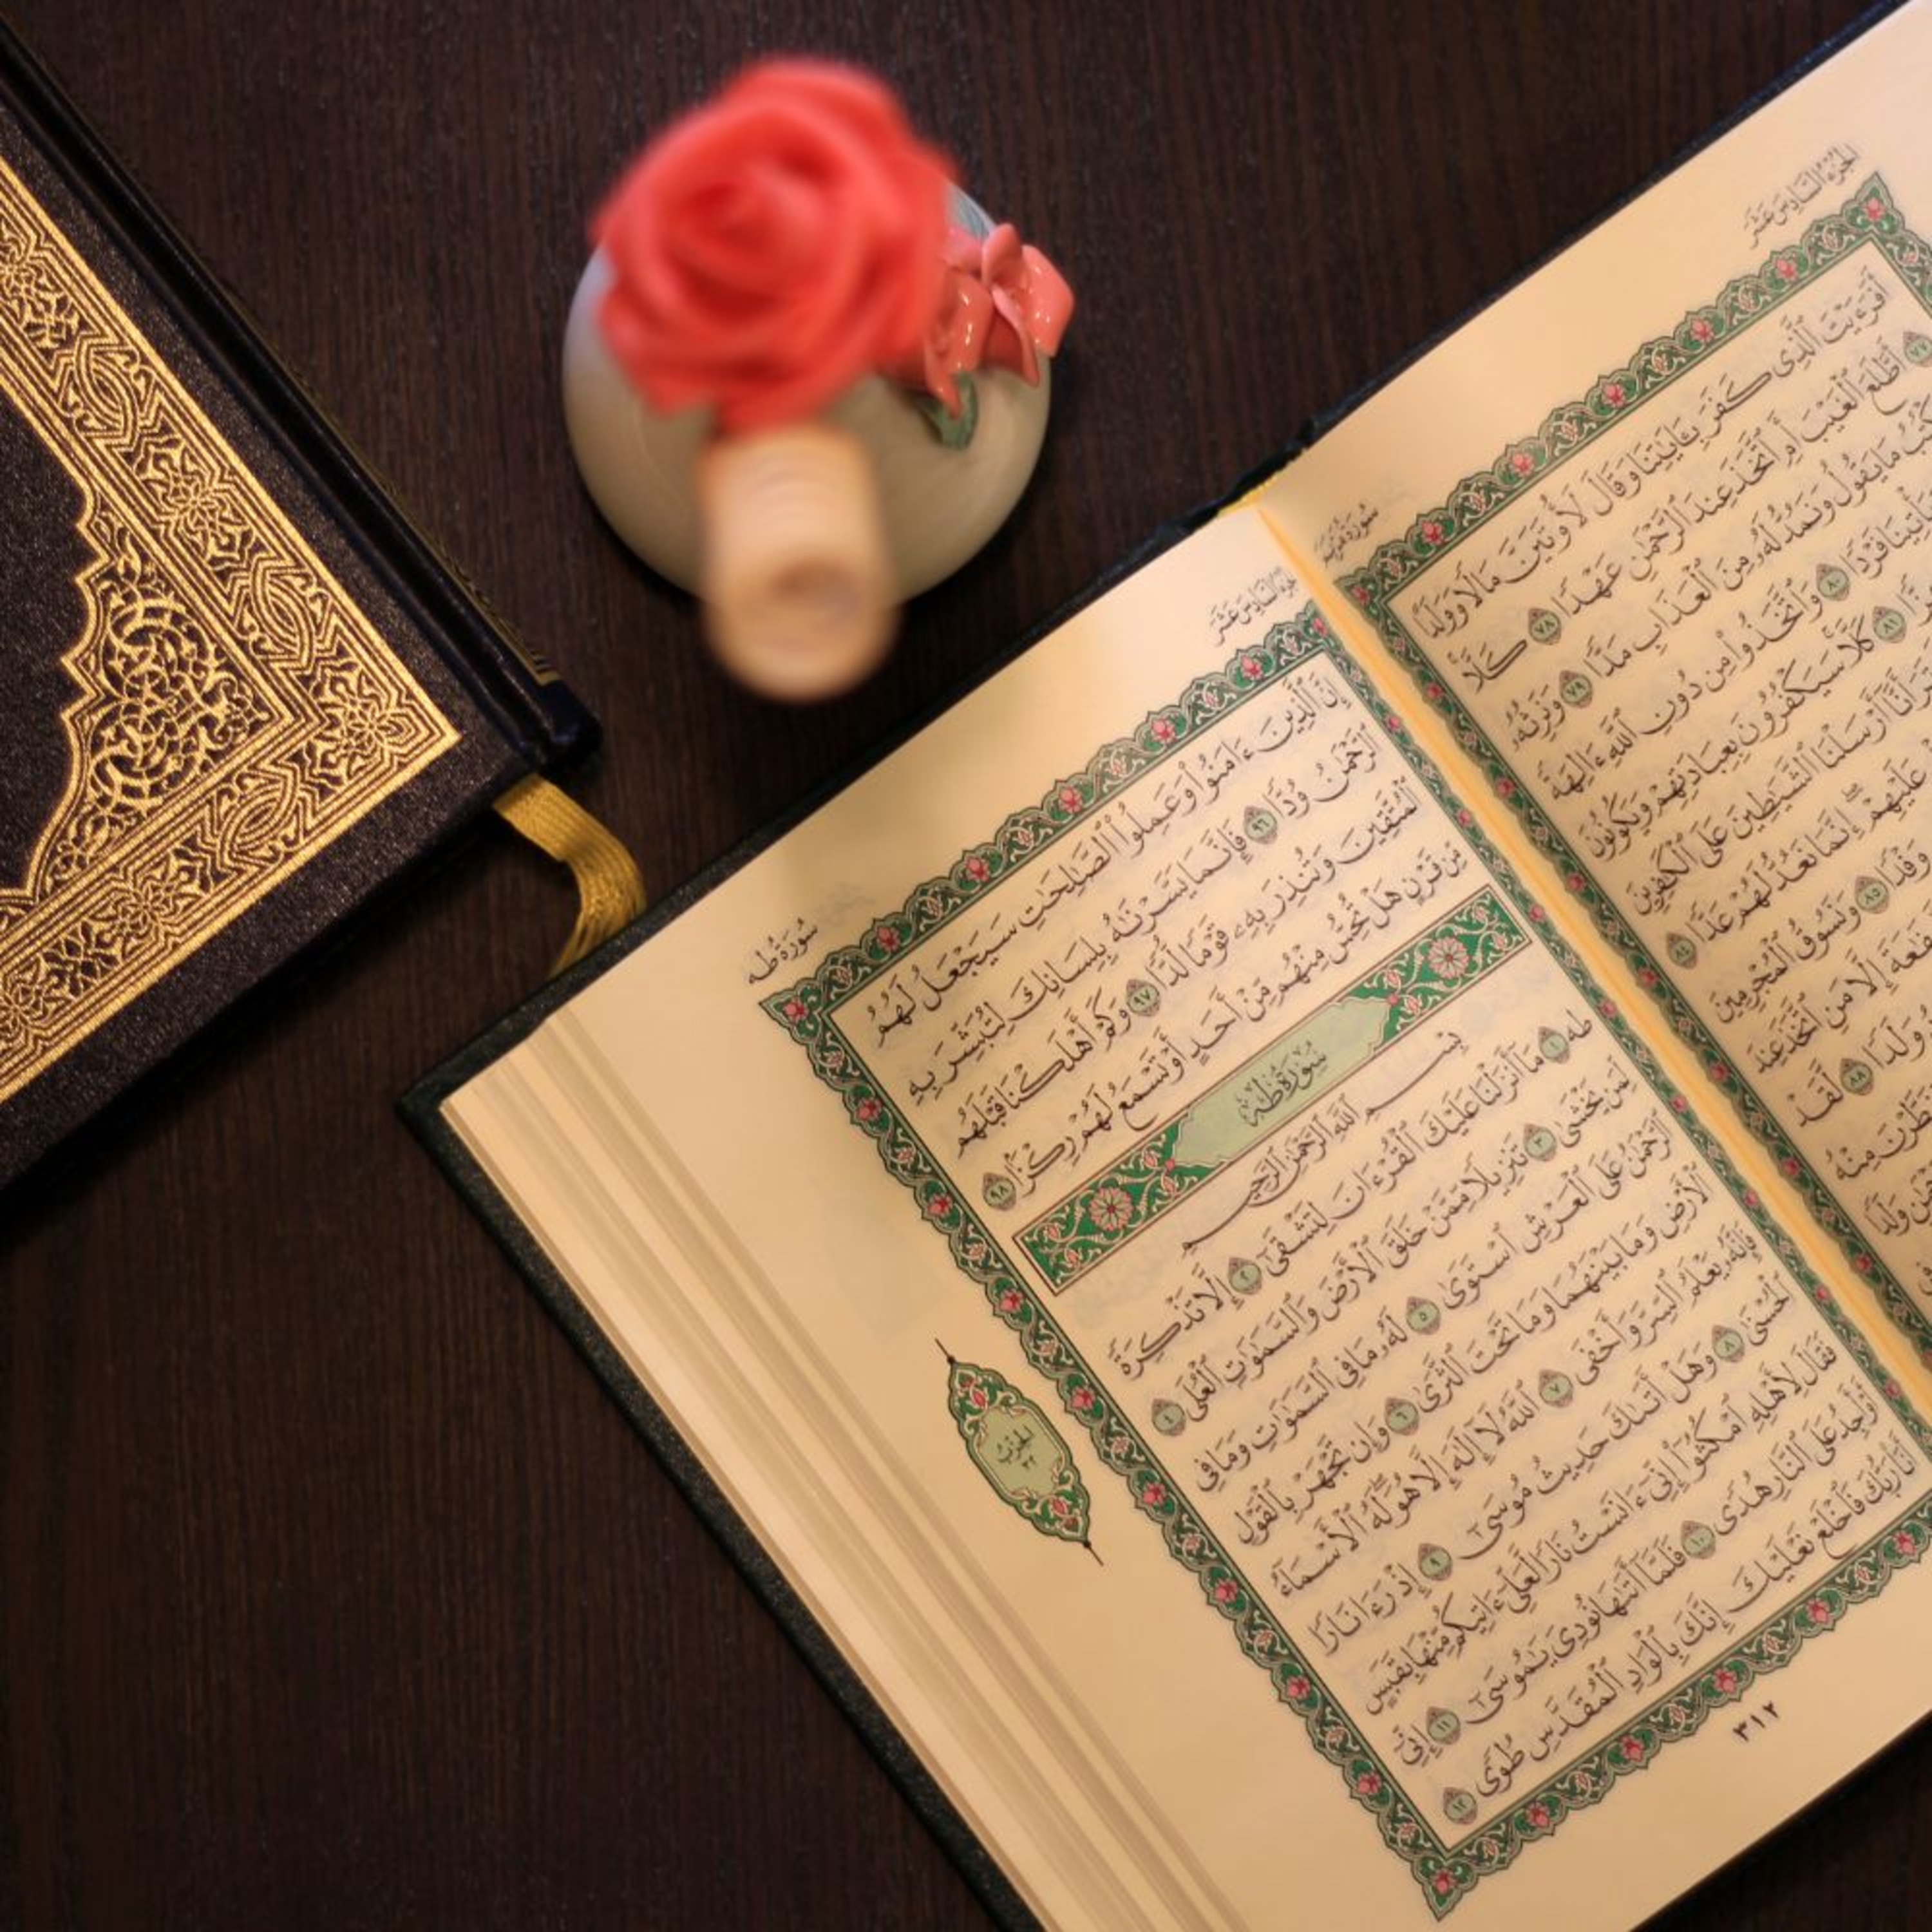 الجزء السادس عشر
سورة مريم
أَفَرَءَيْتَ ٱلَّذِى كَفَرَ بِـَٔايَـٰتِنَا وَقَالَ لَأُوتَيَنَّ مَالًا وَوَلَدًا
٧٧ أَطَّلَعَ ٱلْغَيْبَ أَمِ ٱتَّخَذَ عِندَ ٱلرَّحْمَـٰنِ عَهْدًا ٧٨ كَلَّا
مَا يَقُولُ وَنَمُدُّ لَهُۥ مِنَ ٱلْعَذَابِ مَدًّا ٧٩ وَنَرِثُهُۥ
فَرْدًا ٨٠ وَٱتَّخَذُوا۟ مِن دُونِ ٱللَّهِ ءَالِهَةً
٨١ كَلَّا سَيَكْفُرُونَ بِعِبَادَتِهِمْ وَيَكُونُونَ
أَنَّآ أَرْسَلْنَا ٱلشَّيَـٰطِينَ عَلَى ٱلْكَـٰفِرِينَ
عَلَيْهِمْ إِنَّمَا نَعُدُّ لَهُمْ عَدًّا ٨٤
وَفْدًا ٨٥ وَنَسُوقُ ٱلْمُجْرِمِينَ
إِلَّا مَنِ ٱتَّخَذَ عِندَ
وَلَدًا ٨٨ لَّقَدْ
مِنْهُ
وَلَدًا
الجزء السادس عشر
سورة طه
إِنَّ ٱلَّذِينَ ءَامَنُوا۟ وَعَمِلُوا۟ ٱلصَّـٰلِحَـٰتِ سَيَجْعَلُ لَهُمُ
ٱلرَّحْمَـٰنُ وُدًّا ٩٦ فَإِنَّمَا يَسَّرْنَـٰهُ بِلِسَانِكَ لِتُبَشِّرَ بِهِ
ٱلْمُتَّقِينَ وَتُنذِرَ بِهِۦ قَوْمًا لُّدًّا ٩٧ وَكَمْ أَهْلَكْنَا قَبْلَهُم
مِّن قَرْنٍ هَلْ تُحِسُّ مِنْهُم مِّنْ أَحَدٍ أَوْ تَسْمَعُ لَهُمْ رِكْزًۢا ٩٨
سورة طه
بِسْمِ ٱللَّهِ ٱلرَّحْمَـٰنِ ٱلرَّحِيمِ
طه ١ مَآ أَنزَلْنَا عَلَيْكَ ٱلْقُرْءَانَ لِتَشْقَىٰٓ ٢ إِلَّا تَذْكِرَةً
لِّمَن يَخْشَىٰ ٣ تَنزِيلًا مِّمَّنْ خَلَقَ ٱلْأَرْضَ وَٱلسَّمَـٰوَٰتِ ٱلْعُلَى ٤
ٱلرَّحْمَـٰنُ عَلَى ٱلْعَرْشِ ٱسْتَوَىٰ ٥ لَهُۥ مَا فِى ٱلسَّمَـٰوَٰتِ وَمَا فِى
ٱلْأَرْضِ وَمَا بَيْنَهُمَا وَمَا تَحْتَ ٱلثَّرَىٰ ٦ وَإِن تَجْهَرْ بِٱلْقَوْلِ
فَإِنَّهُۥ يَعْلَمُ ٱلسِّرَّ وَأَخْفَى ٧ ٱللَّهُ لَآ إِلَـٰهَ إِلَّا هُوَ ۖ لَهُ ٱلْأَسْمَآءُ
ٱلْحُسْنَىٰ ٨ وَهَلْ أَتَىٰكَ حَدِيثُ مُوسَىٰٓ ٩ إِذْ رَءَا نَارًا
فَقَالَ لِأَهْلِهِ ٱمْكُثُوٓا۟ إِنِّىٓ ءَانَسْتُ نَارًا لَّعَلِّىٓ ءَاتِيكُم مِّنْهَا بِقَبَسٍ
أَوْ أَجِدُ عَلَى ٱلنَّارِ هُدًى ١٠ فَلَمَّآ أَتَىٰهَا نُودِىَ يَـٰمُوسَىٰٓ ١١ إِنِّىٓ
أَنَا۠ رَبُّكَ فَٱخْلَعْ نَعْلَيْكَ ۖ إِنَّكَ بِٱلْوَادِ ٱلْمُقَدَّسِ طُوًى ١٢
الحزب
٣٢
٣١٢